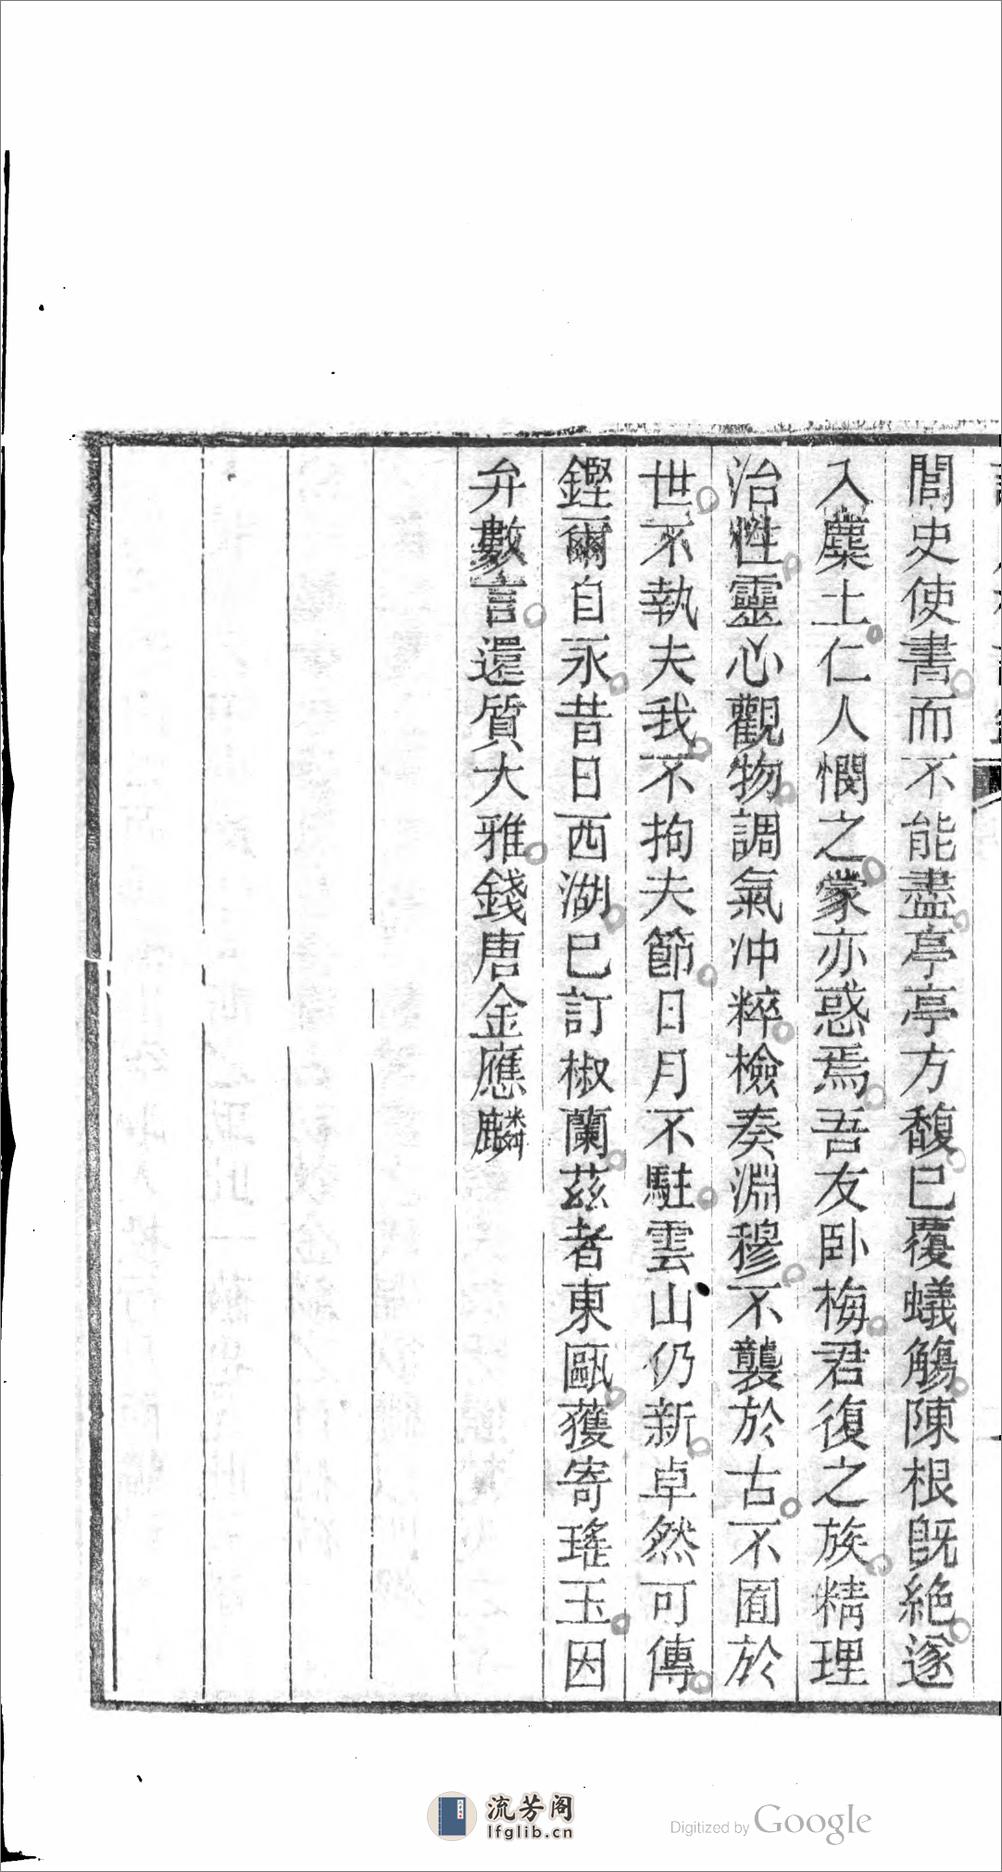 閭史使書而不能盡亭亭方馥已覆蟻觴陳根旣絶遂
入麋土仁人憫之蒙亦惑焉吾友卧梅君復之族精理
治性靈心觀物調氣冲粹檢奏淵穆不襲於古不囿於
世不執夫我不拘夫節日月不駐雲山仍新卓然可傳
鏗爾自永昔日西湖已訂椒蘭茲者東甌獲寄瑤玉因
弁數言還質大雅錢唐金應麟
流芳阁
lfglib.cn
Digitized by Google